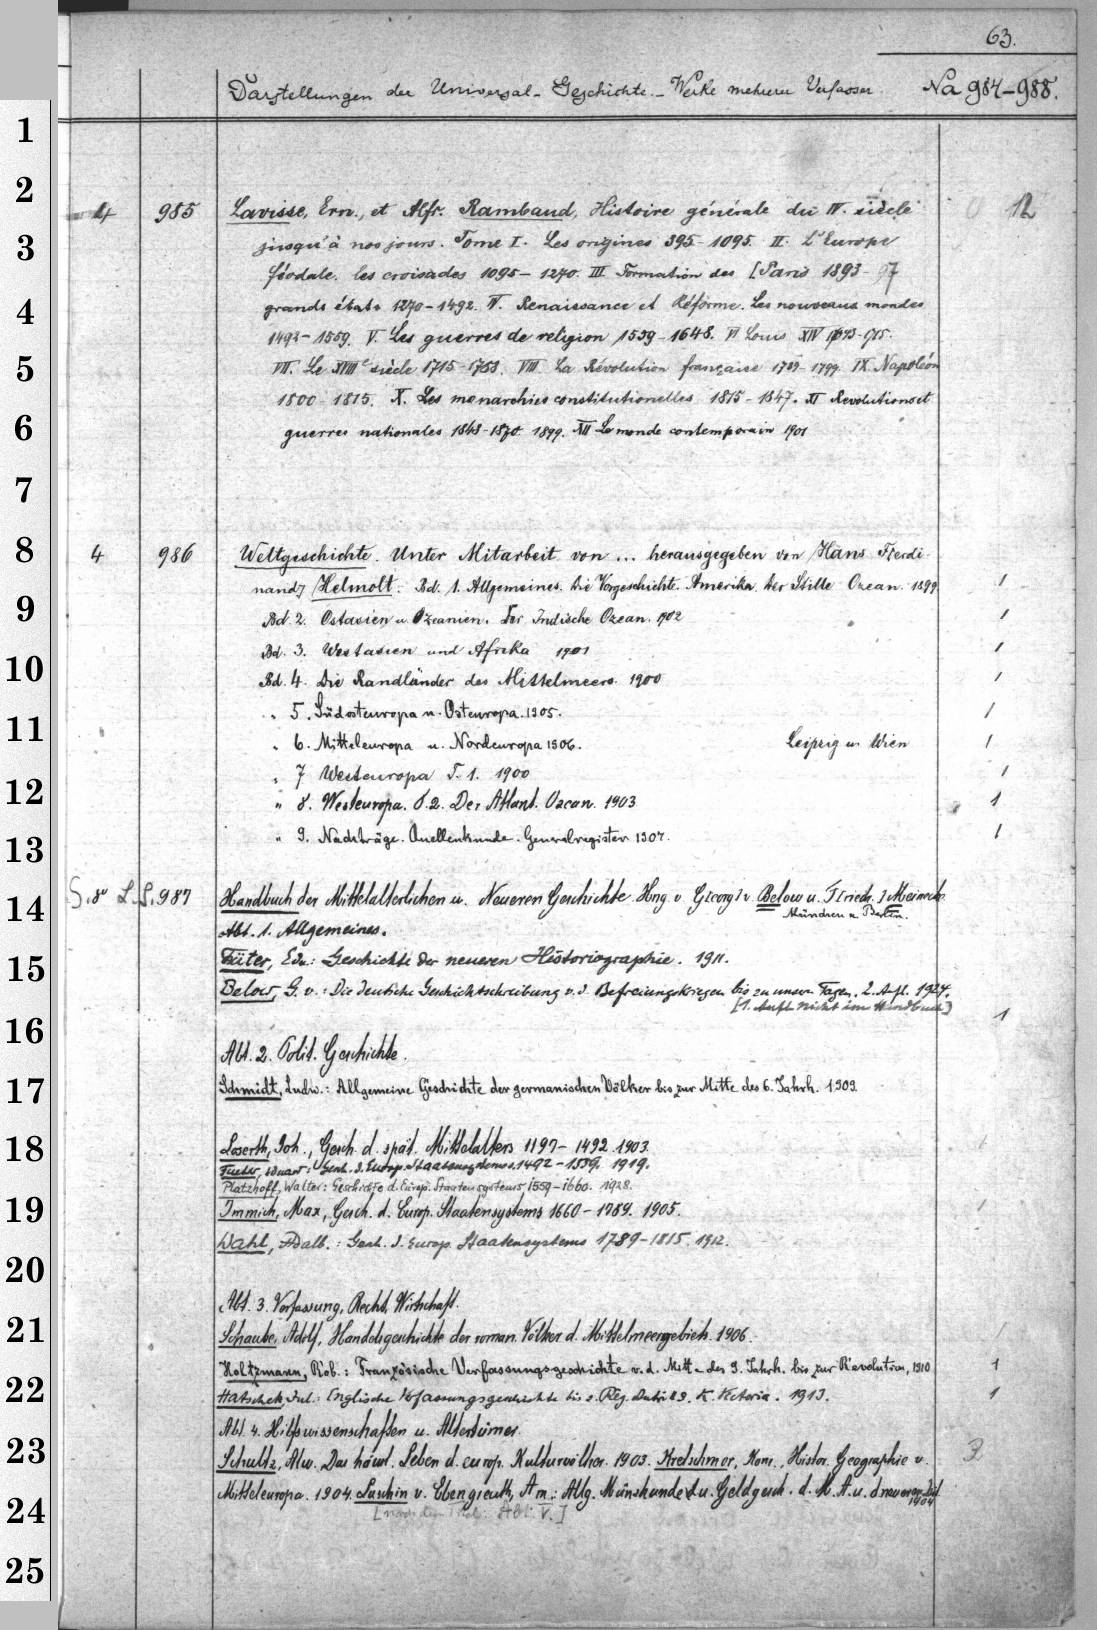 63.
Darstellungen der Universal-Geschichte.- Werke mehrerer Verfasser. Na 984-988.
4 985 Lavisse, Ern., et Alfr. Rambaud, Histoire générale du IV. siècle 12
jusqu'à nos jours. Tome I. Les origines 395-1095. II. L'Europe
féodale. les croisades 1095-1270. III Formation des [Paris 1893-97
grands états 1270-1492. IV. Renaissance et Réforme. Les nouveaux mondes
1492-1559. V. Les guerres de religion 1559-1648. VI Louis XIV 1643-1715.
VII. Le XVIIIe siècle 1715-1788. VIII La Révolution française 1789-1799. IX. Napoléon
1800-1815. X. Les monarchies constitutionelles 1815-1847. XI Revolutions et
guerres nationales 1848-1870. 1899. XII Le monde contemporain 1901
4 986 Weltgeschichte. Unter Mitarbeit von ... herausgegeben von Hans Ferdi-
nand Helmolt. Bd. 1. Allgemeines. Die Vorgeschichte. Amerika. Der Stille Ozean. 1899. 1
Bd. 2. Ostasien u. Ozeanien. Der Indische Ozean. 1902 1
Bd. 3. Westasien und Afrika 1901 1
Bd. 4. Die Randländer des Mittelmeers. 1900 1
" 5. Südosteuropa u. Osteuropa. 1905. 1
" 6. Mitteleuropa u. Nordeuropa 1906. Leipzig u. Wien 1
" 7 Westeuropa T. 1. 1900 1
" 8. Westeuropa. T. 2. Der Atlant. Ozean. 1903 1
" 9. Nachträge. Quellenkunde. Generalregister 1907. 1
S. 8 L. S. 987 Handbuch der Mittelalterlichen u. Neueren Geschichte. Hrg. v. G[eorg] v. Below u. F[riedr.] Meinecke.
München u. Berlin.
Abt. 1. Allgemeines.
Fueter, Edu.: Geschichte der neueren Historiographie. 1911.
Below, G. v.: Die deutsche Geschichtschreibung v. d. Befreiungskriegen bis zu unsern Tagen. 2. Aufl. 1924.
[1. Aufl. nicht im Handbuch] 1
Abt. 2. Polit. Geschichte.
Schmidt, Ludw.: Allgemeine Geschichte der germanischen Völker bis zur Mitte des 6. Jahrh. 1909.
Loserth, Joh., Gesch. d. spät. Mittelalters 1197-1492. 1903.
Fueter, Eduard: Gesch. d. Europ. Staatensystems. 1492-1559. 1919.
Platzhoff, Walter: Geschichte d. Europ. Staatensystems 1559-1660. 1928.
Immich, Max, Gesch. d. Europ. Staatensystems 1660-1789. 1905.
Wahl, Adalb.: Gesch. d. Europ. Staatensystems 1789-1815. 1912.
Abt. 3. Verfassung, Recht, Wirtschaft.
Schaube, Adolf, Handelsgeschichte der roman. Völker d. Mittelmeergebiets. 1906.
Holtzmann, Rob.: Französische Verfassungsgeschichte v. d. Mitte des 9. Jahrh. bis zur Revolution, 1910 1
Hatschek, Jul.: Englische Verfassungsgeschichte bis z. Reg. Antritt d. K. Victoria. 1913. 1
Abt. 4. Hilfswissenschaften u. Altertümer.
Schultz, Alw. Das häusl. Leben d. europ. Kulturvölker. 1903. Kretschmer, Konr., Histor. Geographie v. 3
Mitteleuropa. 1904. Luschin v. Ebengreuth, A.: Allg. Münzkunde u. Geldgesch. d. M. A. u. d. neueren Zeit
1904